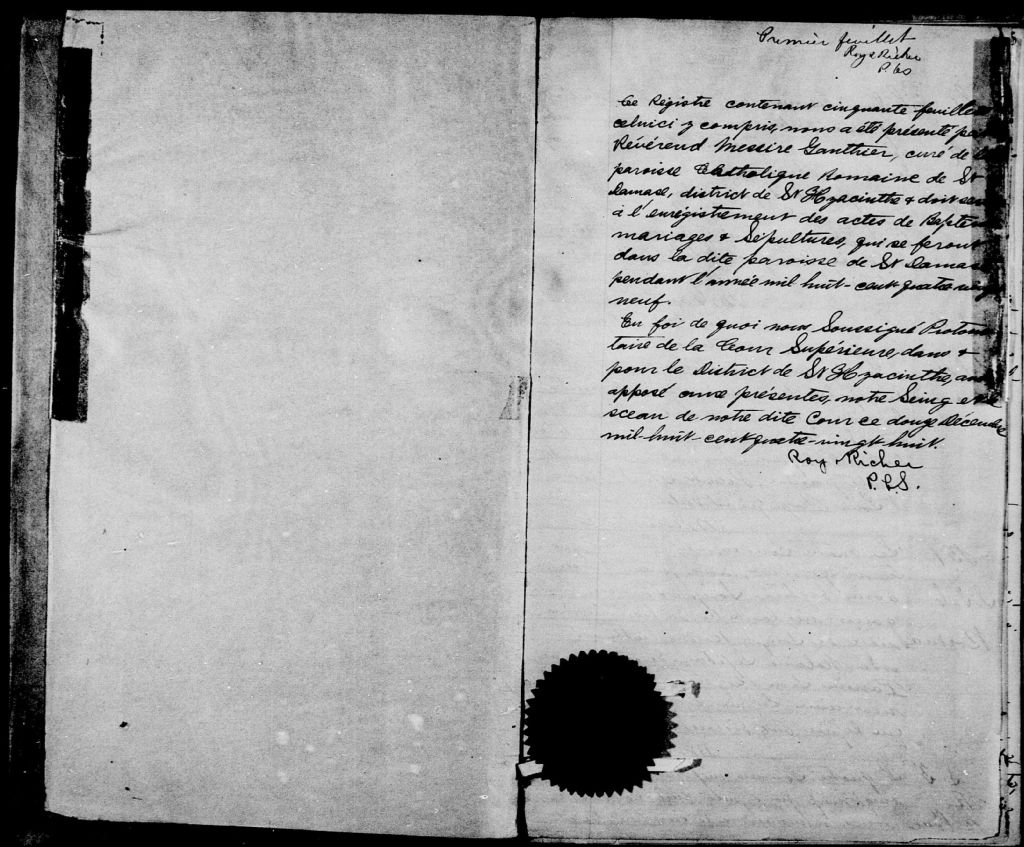 Premier feuillet
Roy & Richer
P.C.S
Ce Régistre contenant cinquante feuilles
celuici y compris, nous a été présenté par
Révérend Messire Gauthier, curé de la
paroisse Catholique Romaine de St
Damase, district de St Hyacinthe & doit ser
à l'enrégistrement des actes de Baptem
mariages & Sépultures, qui se feront
dans la dite paroisse de St Damase
pendant l'année mil huit-cent quatre vingt
neuf.
En foi de quoi nous Soussigné Protono
taire de la Cour Supérieure, dans &
pour le District de St Hyacinthe, avons
apposé aux présentes, notre Seing et le
sceau de notre dite Cour ce douze Décembre
mil-huit-cent quatre-vingt huit.
Roy & Richer
P.C.S.